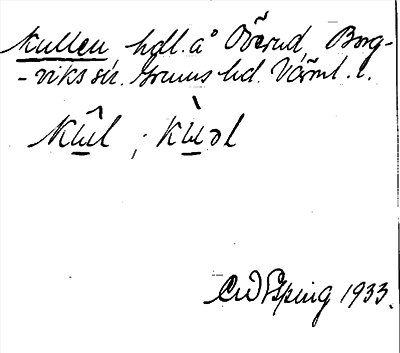 Kullen hdl. å Överud, Borg-
-viks sn. Grums hd. Värml. l.
Kul ; Kuəl
1933.